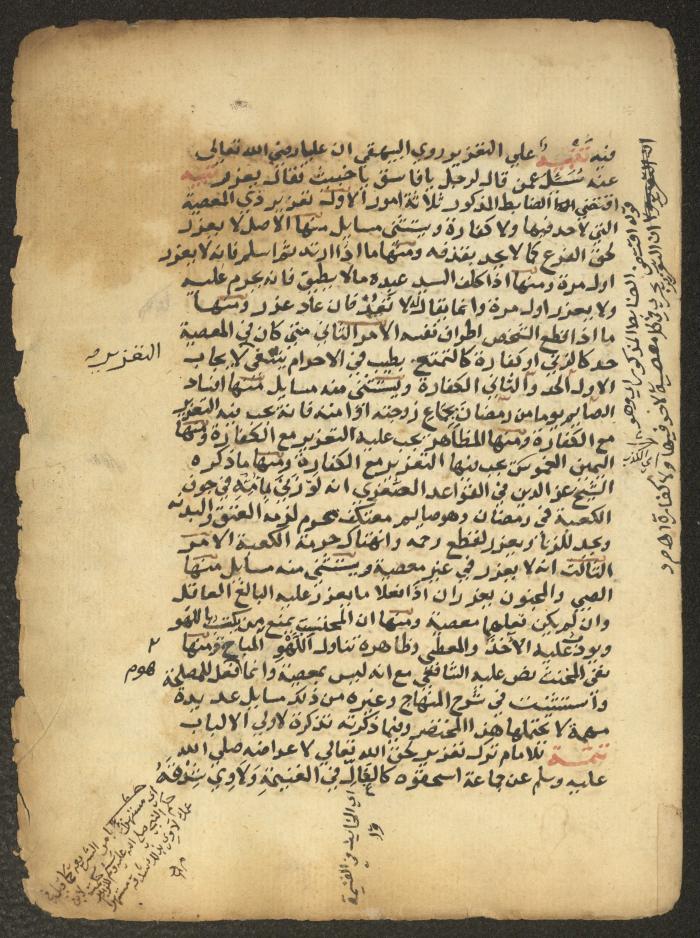 منه تنبيه على التعزير روى البيهقي ان عليا رضي الله تعالى
عنه سُئل عمن قال لرجل يا فاسق يا خبيث فقال يعزر تنبيه
اقتضى الضابط المذكور ثلاثة امور الاول تعزير ذي المعصية
التي لا حد فيها ولا كفارة ويستثنى مسايل منها الاصل لا يعزر
لحق الفرع كما لا يحد بقذفه ومنها ما اذا ارتد ثم اسلم فانه لا يعزر
اول مرة ومنها اذا كلف السيد عبده ما لا يطيق فانه يحرم عليه
ولا يعزر اول مرة وانما يقال له لا تَعُدْ فان عاد عزر ومنها
ما اذا قطع الشخص اطراف نفسه الامر الثاني متى كان في المعصية
حد كالزنى او كفارة كالتمتع بطيب في الاحرام ينتفي لايجاب
الاول الحد والثاني الكفارة ويستثنى منه مسايل منها افساد
الصايم يوما من رمضان بجماع زوجته او امته فانه يجب فيه التعزير
مع الكفارة ومنها المظاهر يجب عليه التعزير مع الكفارة ومنها
اليمين الغموس يجب فيها التعزير مع الكفارة ومنها ما ذكره
الشيخ عز الدين في القواعد الصغرى انه لو زنى بامه في جوف
الكعبة في رمضان وهو صايم معتكف محرم لزمه العتق والبدنه
ويحد للزنا ويعزر لقطع رحمه وانتهاك حرمة الكعبة الامر
الثالث انه لا يعزر في غير معصية ويستثنى منه مسايل منها
الصبي والمجنون يعزران اذا فعلا ما يعزر عليه البالغ العاقل
وان لم يكن فعلهما معصية ومنها ان المحتسب يمنع من يكتسب باللهو
ويودب عليه الآخذ والمعطي وظاهره تناول اللهو المباح ومنها
نفي المخنث نص عليه الشافعي مع انه ليس بمعصية وانما فعل للمصلحة
واستثنيت في شرح المنهاج وغيره من ذلك مسايل عديدة
مهمة لا يحتملها هذا المختصر وفيما ذكرته تذكرة لاولي الالباب
تتمة للامام ترك تعزير لحق الله تعالى لاعراضه صلى الله
عليه وسلم عن جماعة استحقوه كالغال في الغنيمة ولاوي شدقه
التعزير
قوله اقتضى الضابط المذكور
معصية لا حد فيها ولا كفارة
اي الخاين في الغنيمة